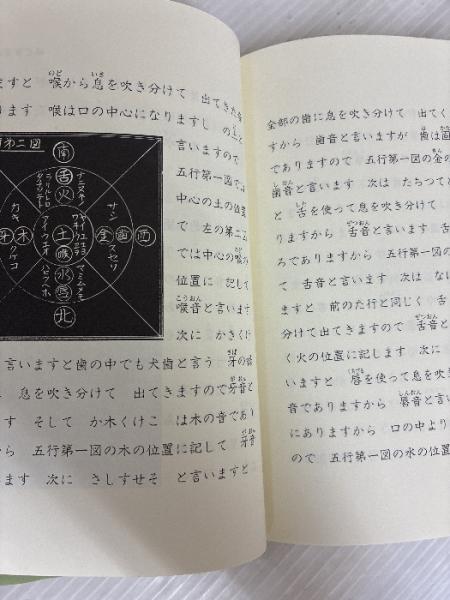 ますと 喉から息を吹き分けて 出てきた
ります 喉は口の中心になりますし
言いますので
五行第一図では
中心の土の位置
で 左の第二
では中心の
位置に 記して
喉音と言います
次に かきくけ
第二図
南
舌
火
ナニヌネノ
タチツテト
ラリルレロ
カキ
クケコ
牙
木
土
喉
アイウエオ
ハヒフヘホ
マミムメモ
サシ
スセソ
金
歯
西
水
唇
北
言いますと歯の中でも犬歯と言う 牙の
息を吹き分けて 出てきますので牙音と
す そして か木くけこ は木の音であり
から 五行第一図の木の位置に記して 牙音
ます 次に さしすせそ と言いますと
全部の歯に息を吹き分けて 出てく
すから 歯音と言いますが 歯は
でありますので 五行第一図の金の
歯音と言います 次は たちつて
と 舌を使って息を吹き分けて
りますから 舌音と言います
ろでありますから 五行第一図の
て 舌音と言います 次は な
ますと 前のた行と同じく 舌
分けて出てきますので 舌音と
く火の位置に記します 次に
いますと 唇を使って息を吹き
音でありますから 唇音と言い
にありますから 口の中より
ので 五行第一図の水の位置